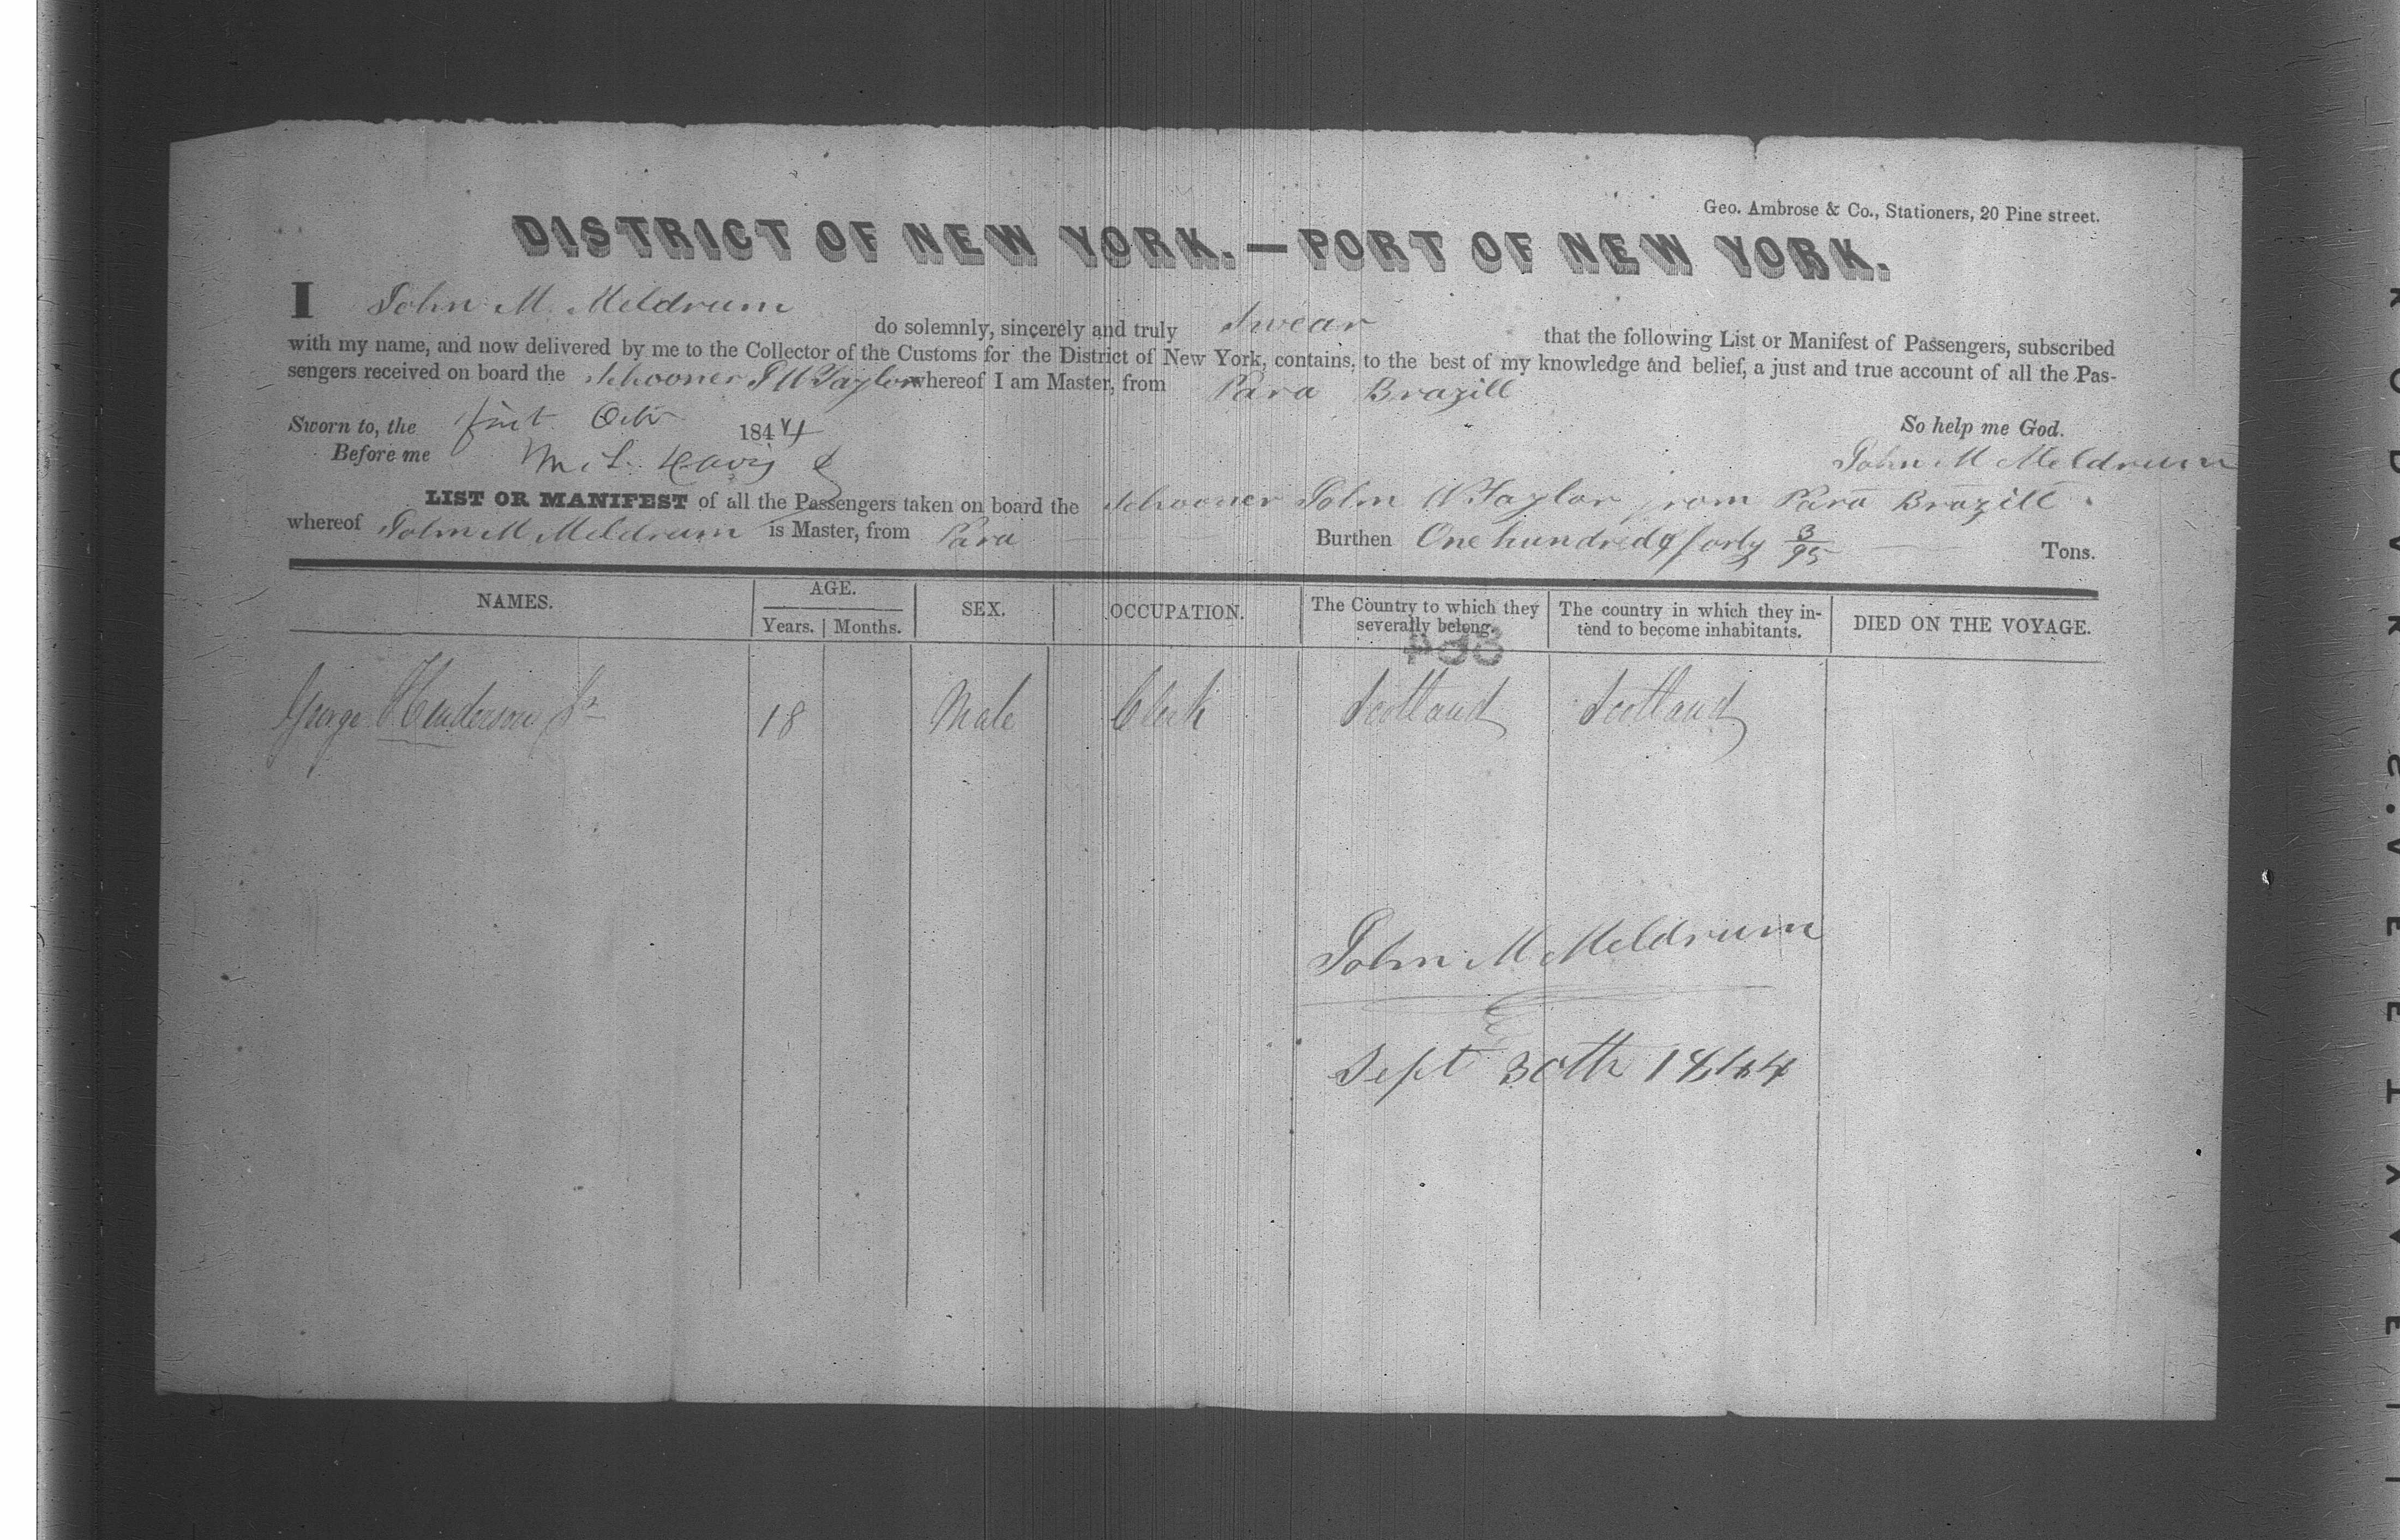 Geo. Ambrose & Co., Stationers, 20 Pine street.
DISTRICT OF NEW YORK.—PORT OF NEW YORK.
I John M. Meldrum do solemnly, sincerely and truly Swear that the following List or Manifest of Passengers, subscribed
with my name, and now delivered by me to the Collector of the Customs for the District of New York, contains, to the best of my knowledge and belief, a just and true account of all the Pas-
sengers received on board the Schooner J W Taylor whereof I am Master, from Para Brazill
So help me God.
Sworn to, the first Octr 1844
John M Meldrum
Before me
LIST OR MANIFEST of all the Passengers taken on board the Schooner John W Taylor from Para Brazill
whereof John M Meldrum is Master, from Para Burthen One hundred & forty 3/95 Tons.
NAMES. AGE. SEX. OCCUPATION. The Country to which they severally belong. The country in which they in-tend to become inhabitants. DIED ON THE VOYAGE.
Years. Months.
George Henderson Jr 18 Male Clerk Scotland Scotland
John M Meldrum
Sept 30th 1844